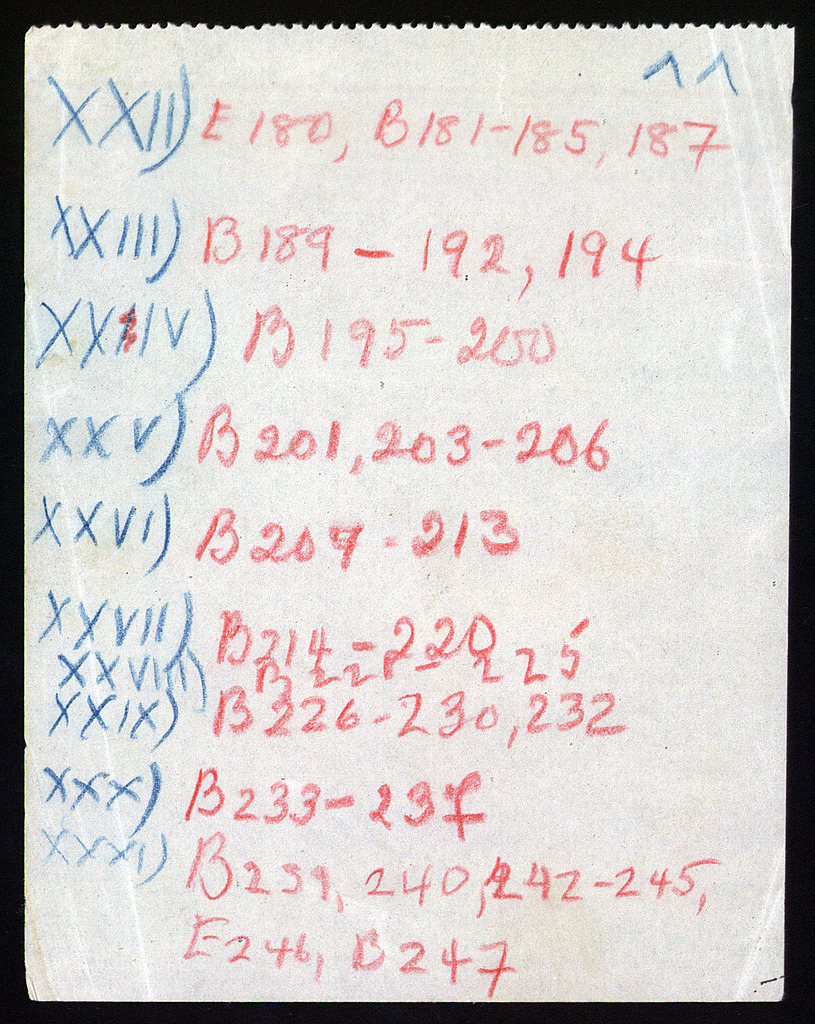 11
XXII) E 180, B 181-185, 187
XXIII) B 189 - 192, 194
XXIV) B 195-200
XXV) B 201, 203-206
XXVI) B 209 - 213
XXVII) B 214 - 220
XXVIII) B 221 - 225
XXIX) B 226-230, 232
XXX) B 233-237
XXXI) B 239, 240, 242-245,
E 246, B 247